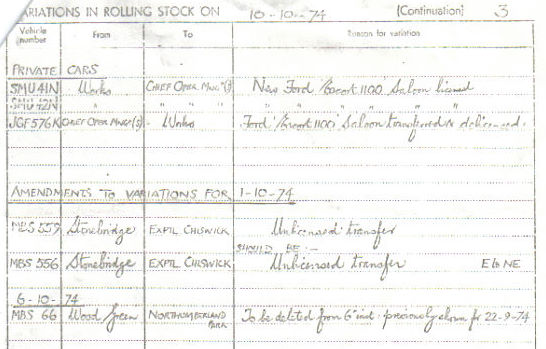 VARIATIONS IN ROLLING STOCK ON 10-10-74 (Continuation) 3
Vehicle number From To Reason for variation
PRIVATE CARS
SMU 41N Works CHIEF OPER. MNGR (S) New Ford 'Escort 1100' Saloon licensed
SMU 42N " " " " " " " "
JGF 576K CHIEF OPER. MNGR (S) - Works Ford 'Escort 1100' Saloon transferred & delicensed.
AMENDMENTS TO VARIATIONS FOR 1-10-74
MBS 559 Stonebridge EXPTL CHISWICK Unlicensed transfer
SHOULD BE :-
MBS 556 Stonebridge EXPTL CHISWICK Unlicensed transfer E to NE
6-10-74
MBS 66 Wood Green NORTHUMBERLAND PARK To be deleted from 6th inst. previously shown for 22-9-74